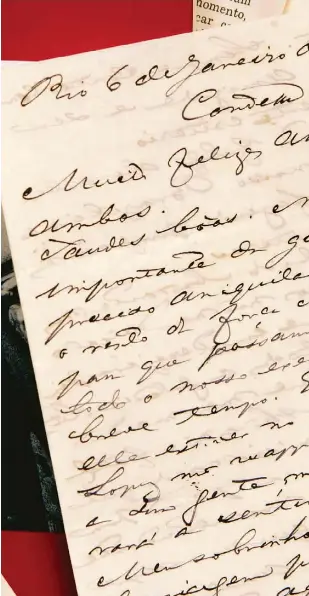 momento,
car
Rio 6 de Janeiro d
Conde
Muito felizes an
ambos.
Saudes bôas.
importante da gu
preciso aniquila
o resto da força
para que possam
todo o nosso exe
breve tempo.
elle estiver no
Lopez não reapp
a sua gente, m
rará a sentir
Meu sobrinho